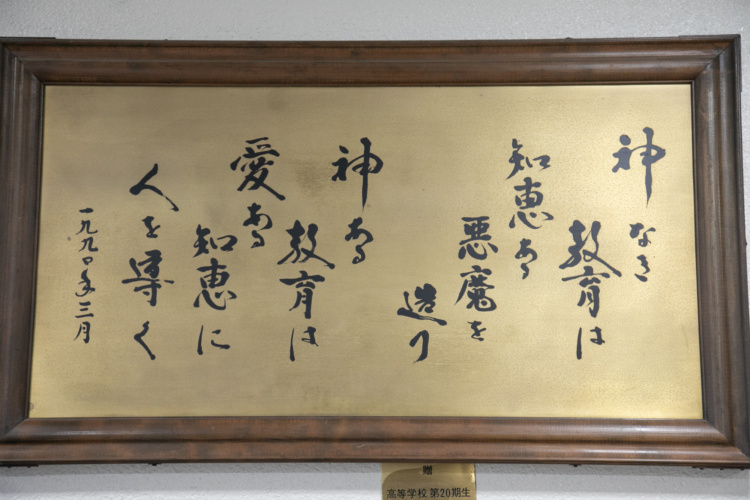 神なき
教育は
知恵ある
悪魔を
造り
神ある
教育は
愛ある
知恵に
人を導く
一九九〇年三月
贈
高等学校 第20期生